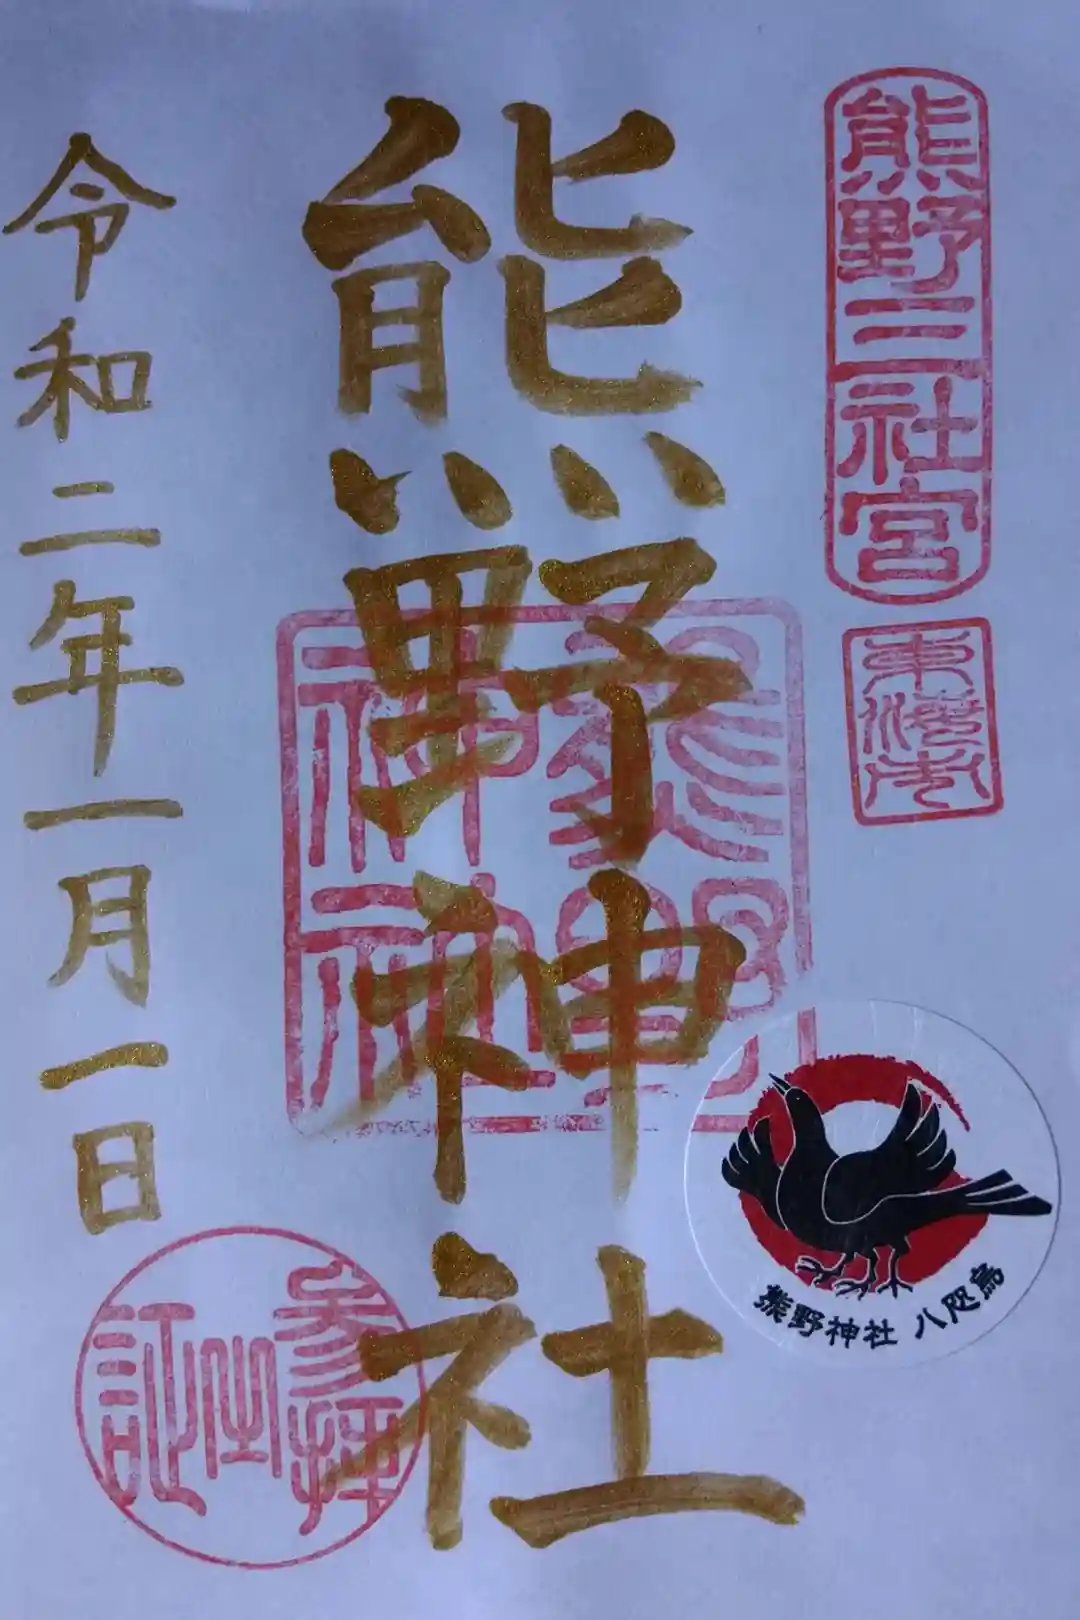 熊野三社宮
東海市
熊野神社
熊野神社
熊野神社 八咫烏
参拝之証
令和二年一月一日